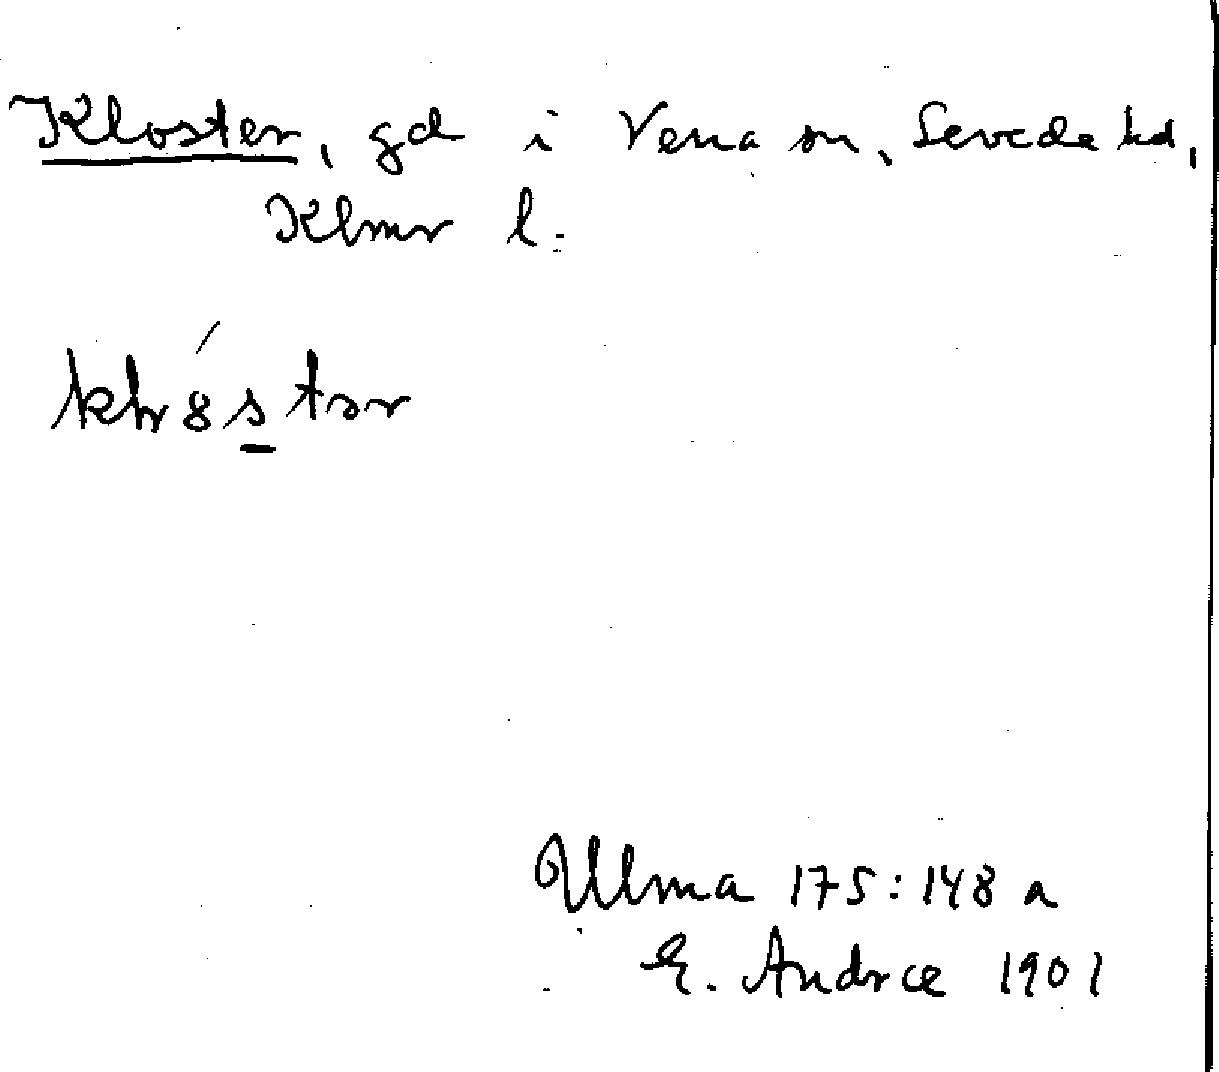 Kloster, gd i Vena sn, Sevede hd,
Klmr l.
Ulma 175:148 a
E. Andræ 1901